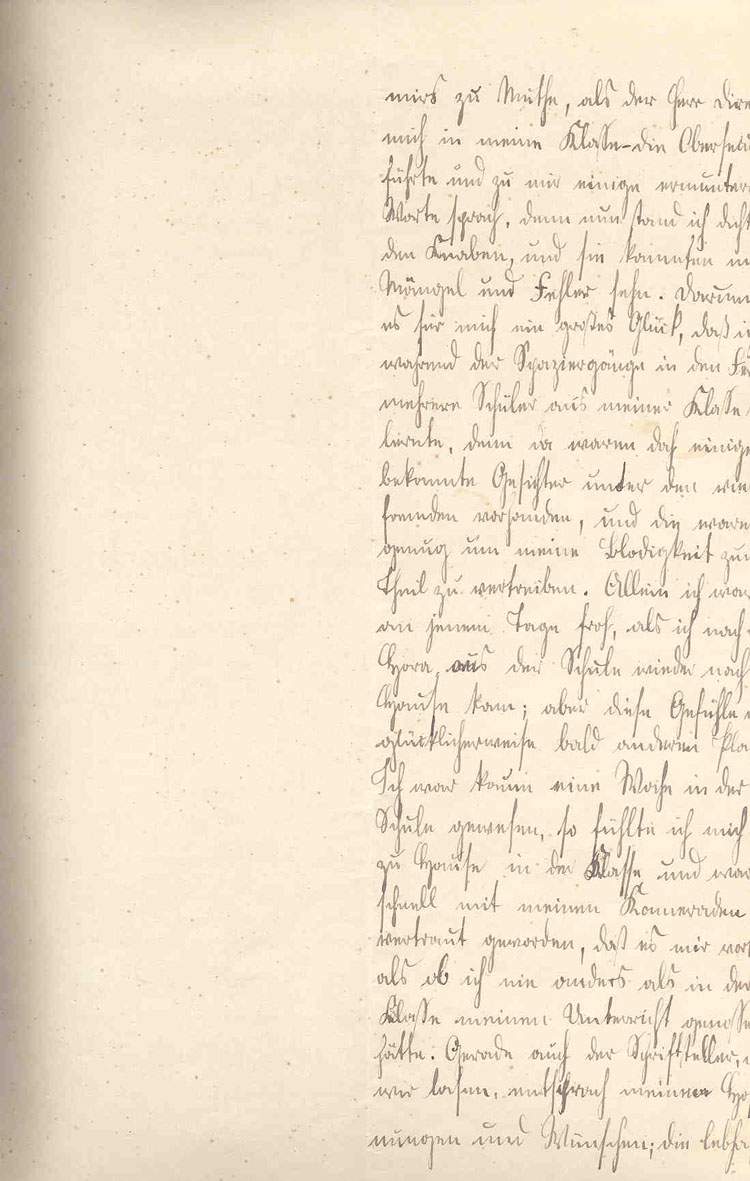 mirs zu Muthe, als der Herr Dire
mich in meine Klasse – die Obersecu
führte und zu mir einige ermunter
Worte sprach, denn nun stand ich dicht
den Knaben, und sie kannten m
Mängel und Fehler sehn. Darum
es für mich ein großes Glück, daß i
während der Spaziergänge in den Fe
mehrere Schüler aus meiner Klasse
lernte, denn da waren doch einige
bekannte Gesichter unter den vie
fremden vorhanden, und die ware
genug um meine Blödigkeit zu
Theil zu vertreiben. Allein ich war
an jenem Tage froh, als ich nach
Hora, aus der Schule wieder nach
Hause kam; aber diese Gefühle
glücklicherweise bald anderen Pla
Ich war kaum eine Woche in der
Schule gewesen, so fühlte ich mich
zu Hause in der Klasse und war
schnell mit meinen Kameraden
vertraut geworden, daß es mir vor
als ob ich nie anders als in der
Klasse meinen Unterricht genosse
hätte. Gerade auch der Schriftsteller,
wir lasen, entsprach meinen Hof
nungen und Wünschen; die lebha